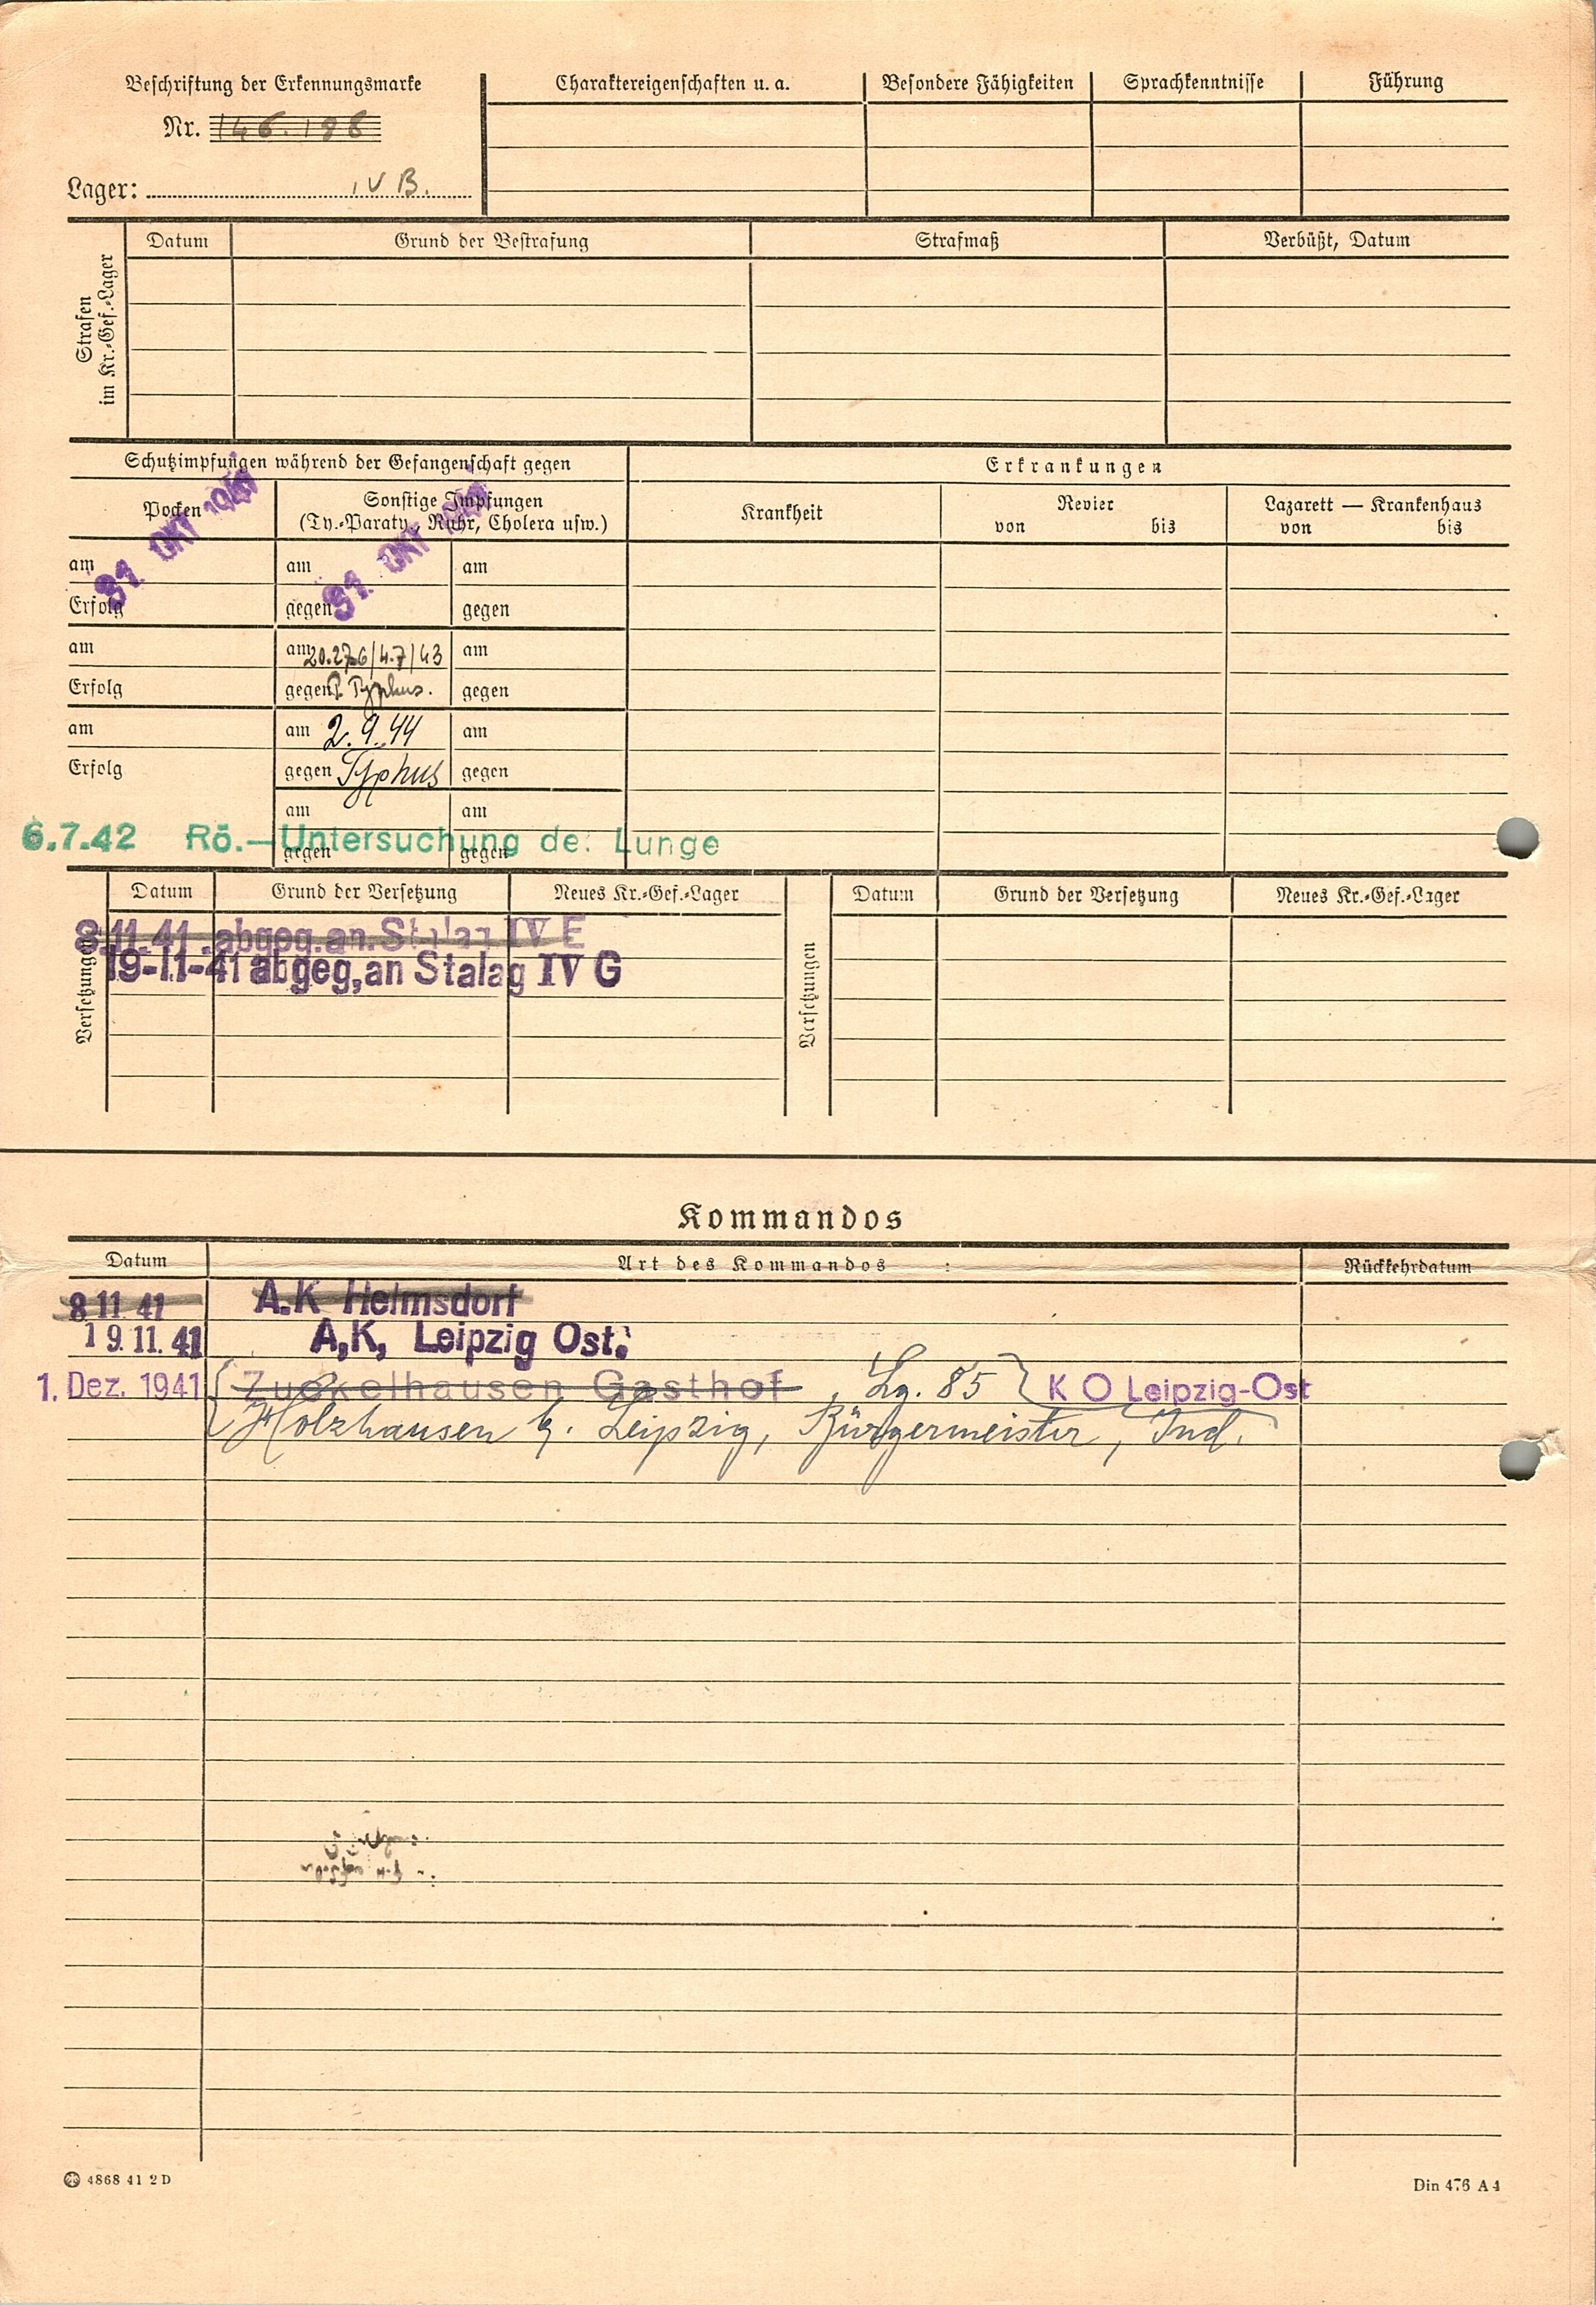 Beschriftung der Erkennungsmarke
Nr. 146.188
Lager: IV B.
Charaktereigenschaften u. a. Besondere Fähigkeiten Sprachkenntnisse Führung
Strafen
im Kr.-Gef.-Lager
Datum Grund der Bestrafung Strafmaß Verbüßt, Datum
Schutzimpfungen während der Gefangenschaft gegen
Erkrankungen
Pocken
Sonstige Impfungen
(Ty.-Paraty., Ruhr, Cholera usw.)
Krankheit
Revier
von bis
Lazarett — Krankenhaus
von bis
31. OKT 1941
31. OKT 1941
am am am
Erfolg gegen gegen
am am 20.27.6/4.7/43 am
Erfolg gegen Typhus. gegen
am am 2.9.44 am
Erfolg gegen Typhus gegen
am am
gegen gegen
6.7.42 Rö.-Untersuchung der Lunge
Versetzungen
Datum Grund der Versetzung Neues Kr.-Gef.-Lager
8.11.41. abgeg. an. Stalag IV E
19-11-41 abgeg, an Stalag IV G
Versetzungen
Datum Grund der Versetzung Neues Kr.-Gef.-Lager
Kommandos
Datum Art des Kommandos : Rückkehrdatum
8 11 41 A.K Helmsdorf
19.11.41 A,K, Leipzig Ost.
1. Dez. 1941 Zuckelhausen Gasthof, Lg. 85 K O Leipzig-Ost
Holzhausen b. Leipzig, Bürgermeister, Ind.
4868 41 2 D
Din 476 A 4